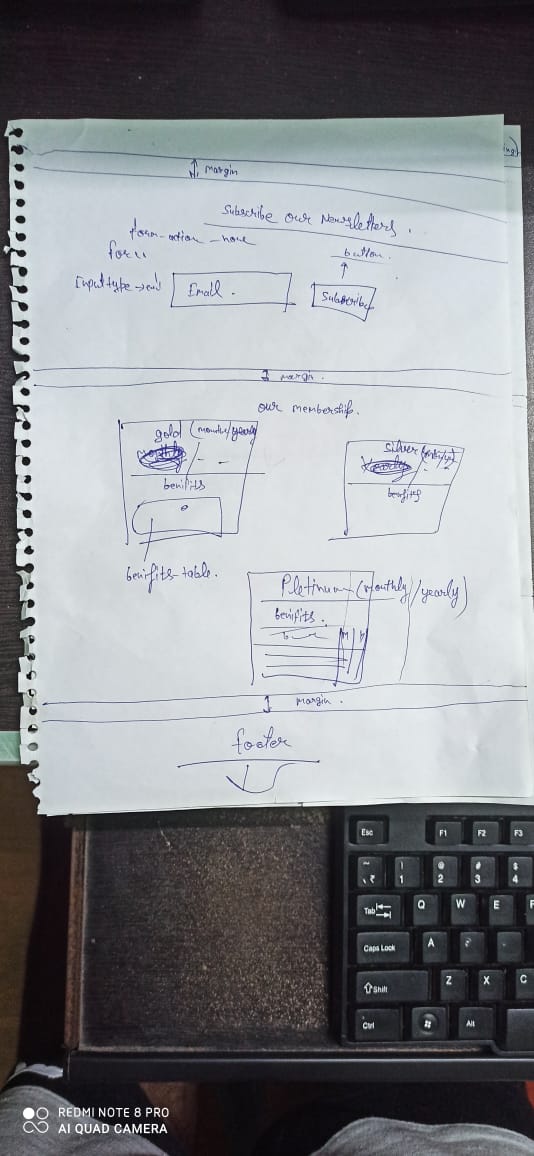 margin
Subscribe our Newsletters.
form-action - none
button.
Input type →
Email.
Subscribe
margin.
our membership.
gold (monthly/yearly
silver
benifits
benifits
benifits-table.
Pletinum (Monthly/yearly)
benifits.
M Y
margin.
footer
Esc F1 F2 F3
~ ! @ # $
` ₹ 1 2 3 4
Tab Q W E
Caps Lock A
Shift Z X C
Ctrl Alt
REDMI NOTE 8 PRO
AI QUAD CAMERA